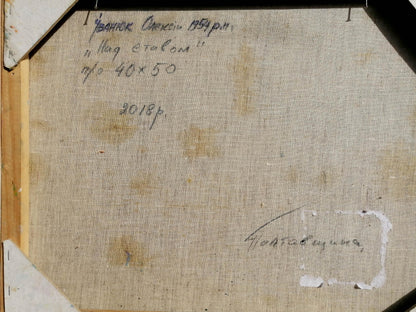 Іванюк Олексій 1954 р.н.
„Над ставом"
п/о 40×50
2018р.
Полтавщина,